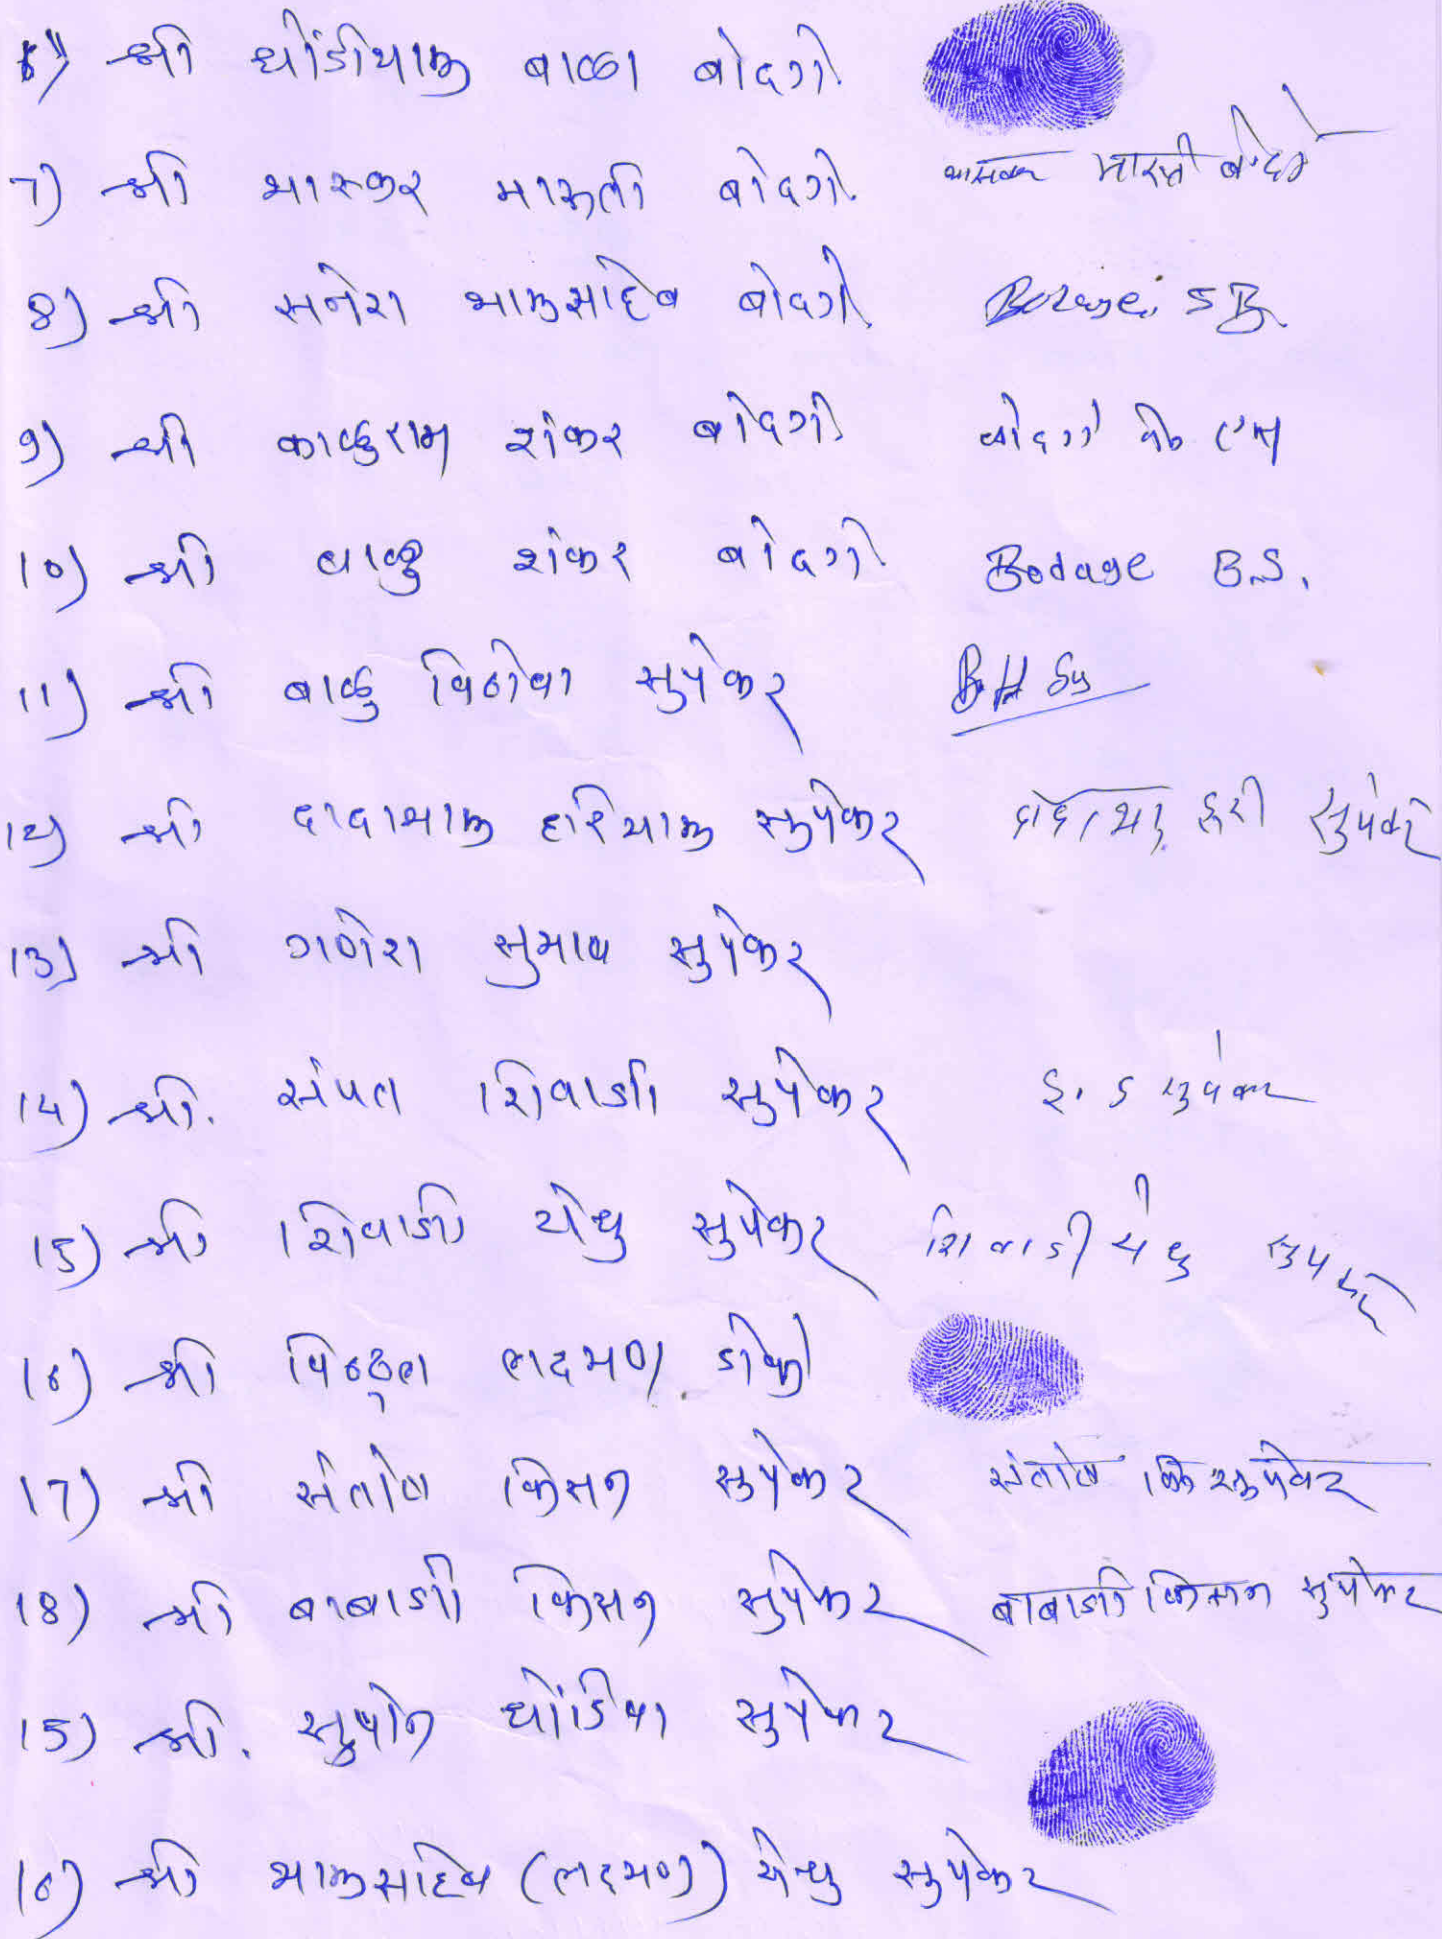 6) श्री धोंडीभाऊ बाळा बोदगे
7) श्री भास्कर मारुती बोदगे भास्कर मारुती बोदगे
8) श्री भाऊसाहेब बोदगे S B
9) श्री काळुराम शंकर बोदगे बोदगे
10) श्री बाळु शंकर बोदगे Bodage B.S.
11) श्री बाळु विठोबा सुपेकर
12) श्री दादाभाऊ हरिभाऊ सुपेकर दादाभाऊ हरी सुपेकर
13) श्री गणेश सुभाष सुपेकर
14) श्री. संपत शिवाजी सुपेकर सुपेकर
15) श्री शिवाजी येधु सुपेकर शिवाजी येधु सुपेकर
16) श्री विठ्ठल लक्ष्मण डोके
17) श्री संतोष किसन सुपेकर संतोष कि सुपेकर
18) श्री बाबाजी किसन सुपेकर बाबाजी किसन सुपेकर
15) श्री. धोंडिबा सुपेकर
16) श्री भाऊसाहेब (लक्ष्मण) येधु सुपेकर